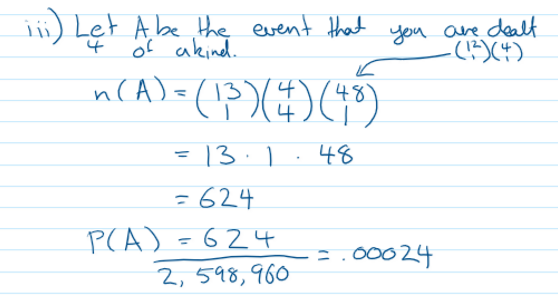 iii) Let A be the event that you are dealt
4 of a kind.
(12 1)(4 1)
n(A) = (13 1)(4 4)(48 1)
= 13 · 1 · 48
= 624
P(A) = 624 / 2,598,960 = .00024